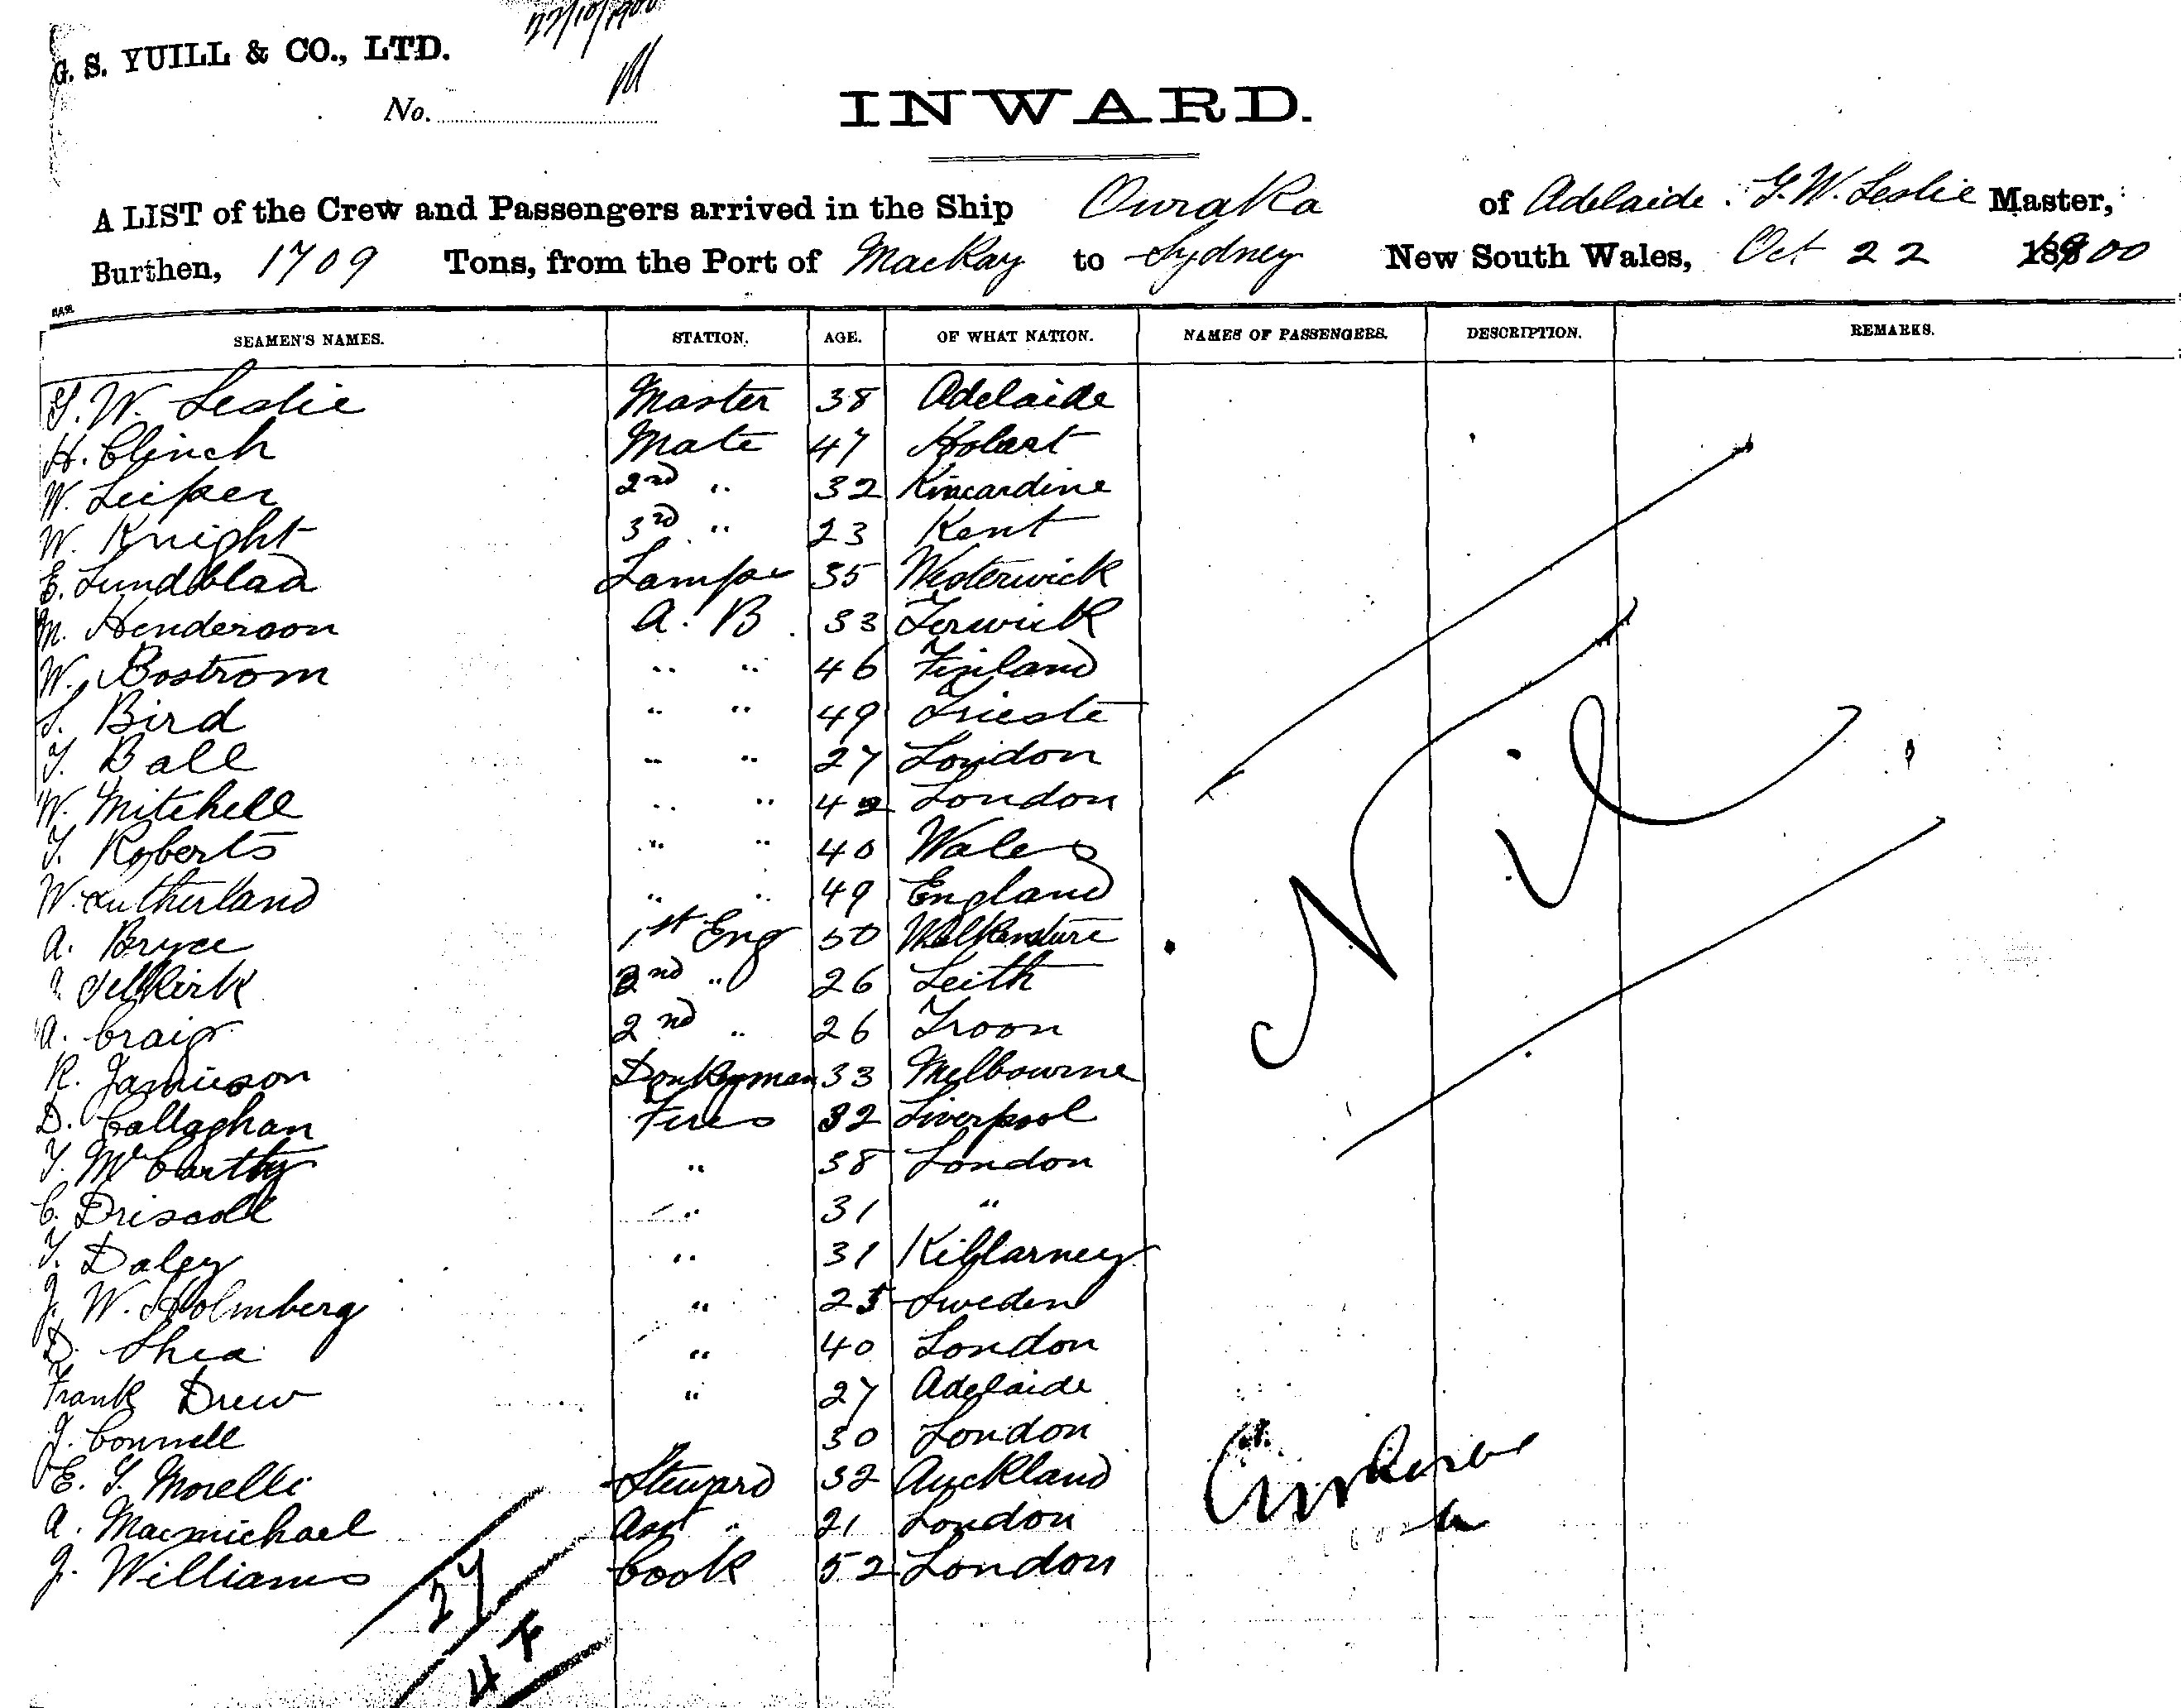 22/10/1900
G. S. YUILL & CO., LTD.
No.
INWARD.
A LIST of the Crew and Passengers arrived in the Ship Ouraka of Adelaide. G. W. Leslie Master,
Burthen, 1709 Tons, from the Port of Mackay to Sydney New South Wales, Oct 22 1900
SEAMEN'S NAMES. STATION. AGE. OF WHAT NATION. NAMES OF PASSENGERS. DESCRIPTION. REMARKS.
G. W. Leslie Master 38 Adelaide
H. Clinch Mate 47 Hobart
W. Leiper 2nd " 32 Kincardine
W. Knight 3rd " 23 Kent
E. Lundblad Lamps 35 Westerwick
M. Henderson A. B. 33 Lerwick
W. Bostrom " " 46 Finland
S. Bird " " 49 Trieste
T. Ball " " 27 London
W. Mitchell " " 42 London
T. Roberts " " 40 Wales
W. Sutherland " " 49 England
A. Bryce 1st Eng 50
Selkirk 2nd " 26 Leith
A. Craig 2nd " 26 Troon
R. Jamieson Donkeyman 33 Melbourne
D. Callaghan Fires 32 Liverpool
T. McCarthy " 38 London
C. Driscoll " 31 "
T. Daley " 31 Killarney
J. W. Holmberg " 25 Sweden
D. Shea " 40 London
Frank Drew " 27 Adelaide
J. Connell 30 London
E. G. Morelli Steward 32 Auckland
A. Macmichael Asst " 21 London
J. Williams Cook 52 London
Nil
27
4 F